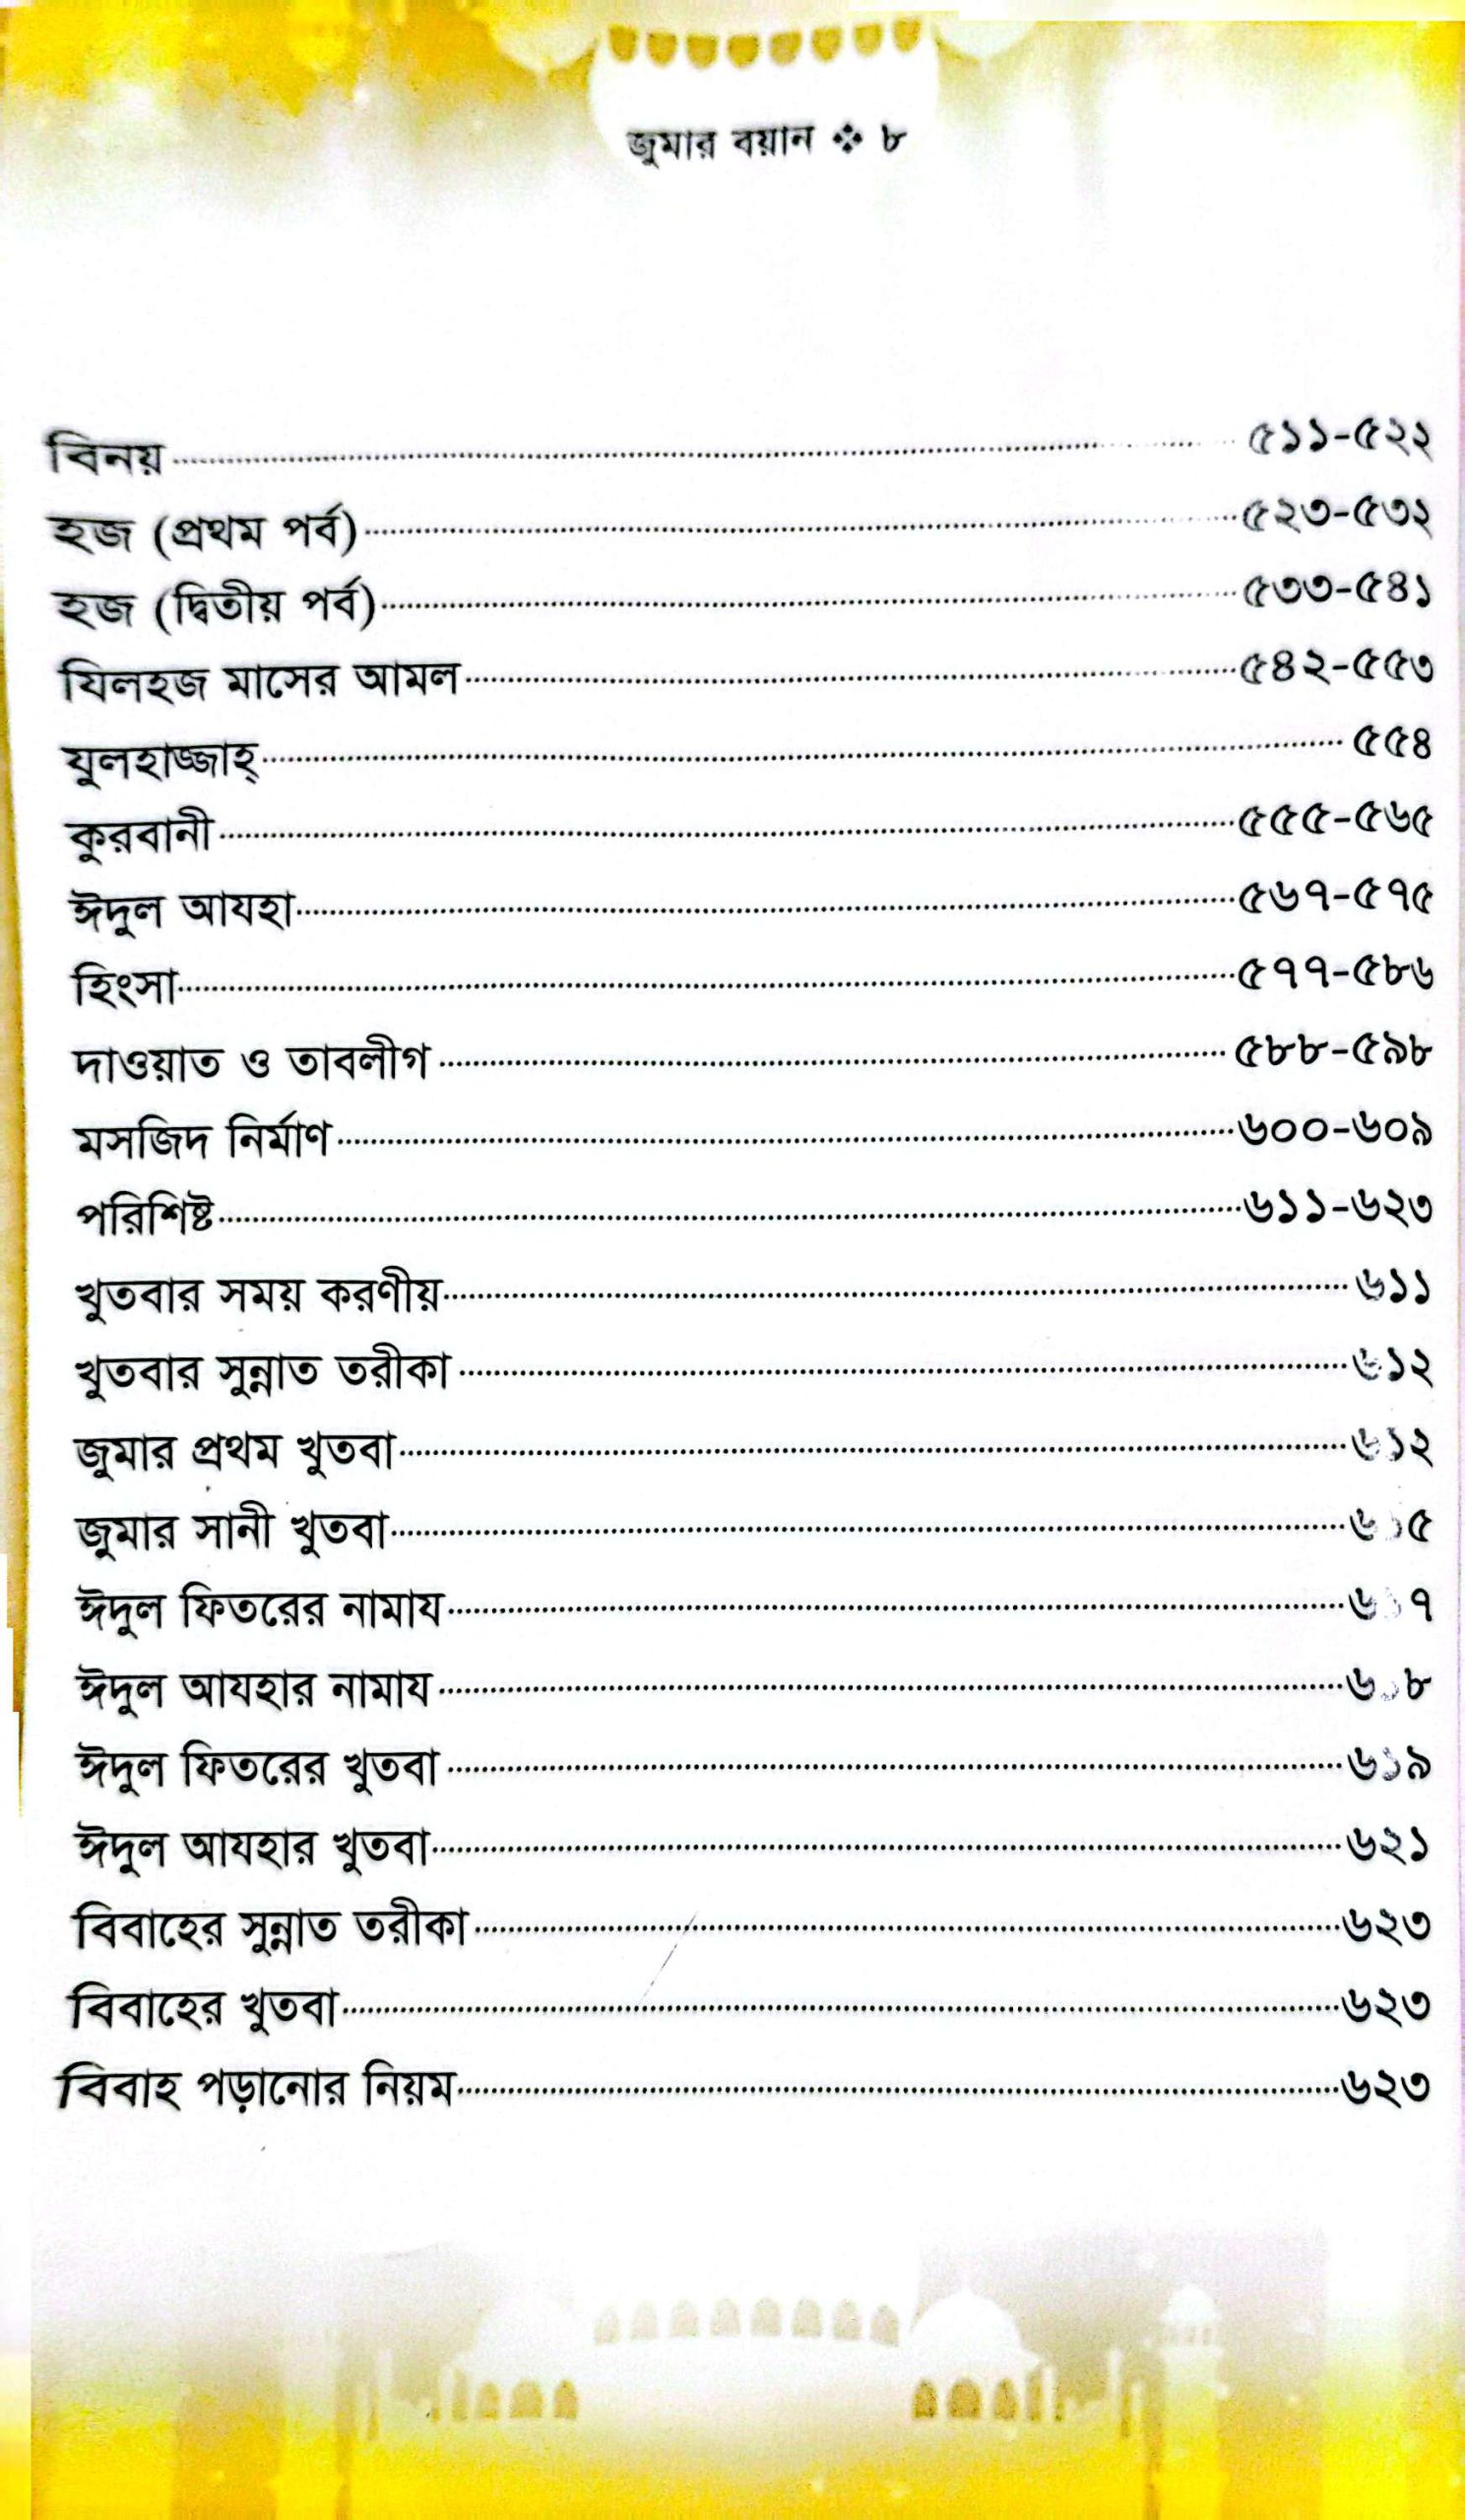 জুমার বয়ান ❖ ৮
বিনয় ৫১১-৫২২
হজ (প্রথম পর্ব) ৫২৩-৫৩২
হজ (দ্বিতীয় পর্ব) ৫৩৩-৫৪১
যিলহজ মাসের আমল ৫৪২-৫৫৩
যুলহাজ্জাহ্ ৫৫৪
কুরবানী ৫৫৫-৫৬৫
ঈদুল আযহা ৫৬৭-৫৭৫
হিংসা ৫৭৭-৫৮৬
দাওয়াত ও তাবলীগ ৫৮৮-৫৯৮
মসজিদ নির্মাণ ৬০০-৬০৯
পরিশিষ্ট ৬১১-৬২৩
খুতবার সময় করণীয় ৬১১
খুতবার সুন্নাত তরীকা ৬১২
জুমার প্রথম খুতবা ৬১২
জুমার সানী খুতবা ৬১৫
ঈদুল ফিতরের নামায ৬১৭
ঈদুল আযহার নামায ৬১৮
ঈদুল ফিতরের খুতবা ৬১৯
ঈদুল আযহার খুতবা ৬২১
বিবাহের সুন্নাত তরীকা ৬২৩
বিবাহের খুতবা ৬২৩
বিবাহ পড়ানোর নিয়ম ৬২৩